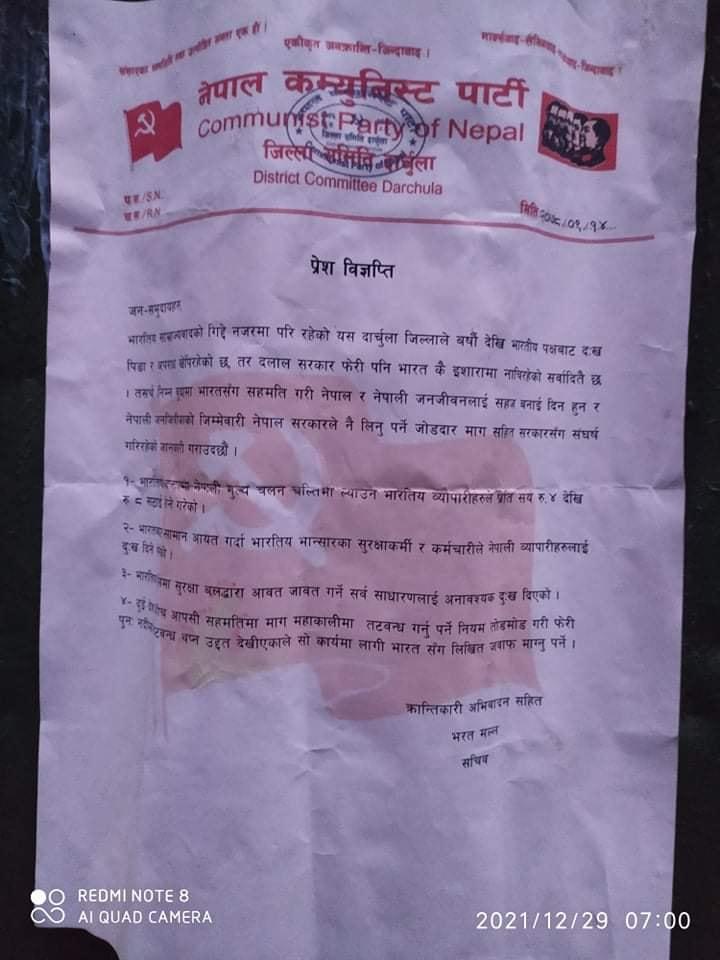 संसारका सर्वहारा तथा उत्पीडित जनता एक हौं !
एकीकृत जनक्रान्ति-जिन्दावाद !
मार्क्सवाद-लेनिनवाद जिन्दावाद !
नेपाल कम्युनिस्ट पार्टी
Communist Party of Nepal
जिल्ला समिति दार्चुला
District Committee Darchula
प.स./S.N.
च.न./R.N.
मिति २०७८/०९/१४
प्रेश विज्ञप्ति
जन-समुदायहरु
भारतिय साम्राज्यवादको गिद्दे नजरमा परि रहेको यस दार्चुला जिल्लाले वर्षौं देखि भारतीय पक्षबाट द:ख
पिडा र खेपिरहेको छ, तर दलाल सरकार फेरी पनि भारत कै इशारामा नाचिरहेको सर्वादितै छ
। तसर्थ निम्न बुदामा भारतसँग सहमति गरी नेपाल र नेपाली जनजीवनलाई सहज बनाई दिन हुन र
नेपाली जनजिविकाको जिम्मेवारी नेपाल सरकारले नै लिनु पर्ने जोडदार माग सहित सरकारसँग संघर्ष
गरिरहेको जानकारी गराउदछौं ।
१- नेपाली मुल्य चलन चल्तिमा ल्याउन भारतिय व्यापारीहरुले प्रति सय रु.४ देखि
रु ८ लिने गरेको ।
२- सामान आयत गर्दा भारतिय भान्सारका सुरक्षाकर्मी र कर्मचारीले नेपाली व्यापारीहरुलाई
दु:ख दिने गरेको ।
३- सुरक्षा बलद्वारा आवत जावत गर्ने सर्व साधारणलाई अनावश्यक दु:ख दिएको ।
४- दुई आपसी सहमतिमा माग महाकालीमा तटवन्ध गर्नु पर्ने नियम तोडमोड गरी फेरी
पुन: थप्न उद्दत देखीएकाले सो कार्यमा लागी भारत सँग लिखित जवाफ माग्नु पर्ने ।
क्रान्तिकारी अभिवादन सहित
भरत मल्ल
सचिव
REDMI NOTE 8
AI QUAD CAMERA
2021/12/29 07:00